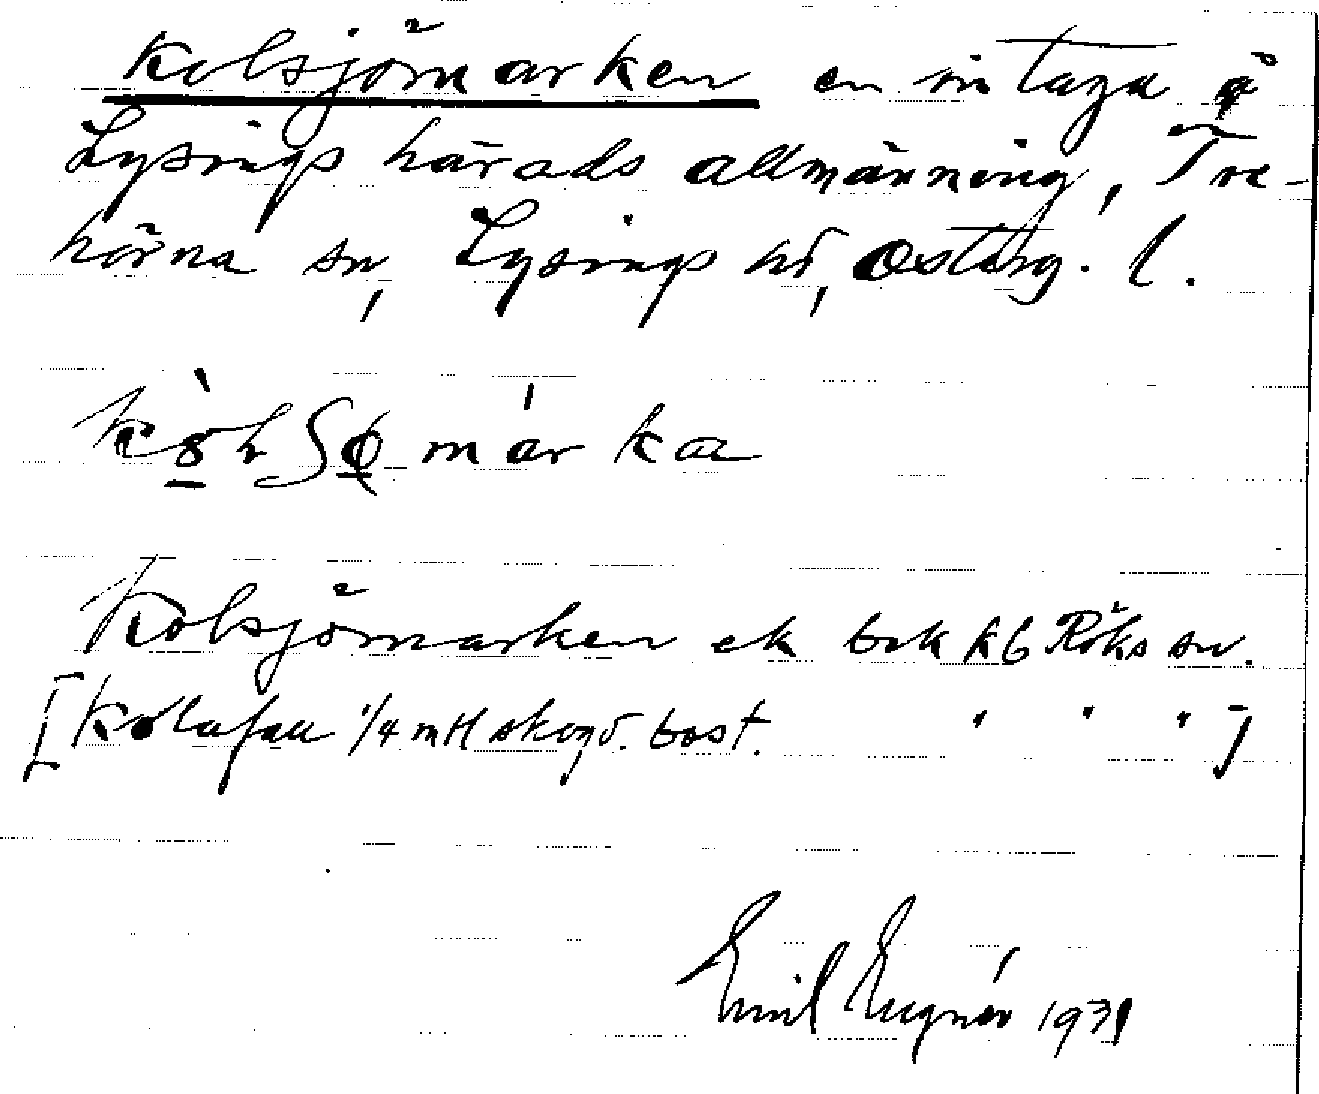 Kolsjömarken en intaga å
Lysings härads allmänning, Tre-
hörna sn, Lysings hd, Österg. l.
Kolsjömarken ek bek kb Röks sn.
[Kolafall 1/4 mtl skogs. bost. " " "]
Emil Eugnér 1931